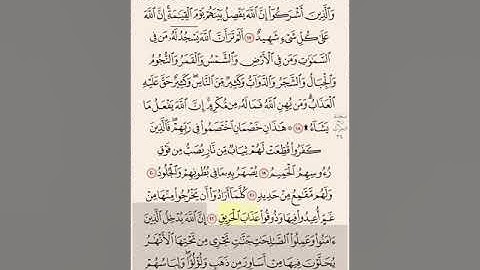 وَٱلَّذِينَ أَشْرَكُوٓا۟ إِنَّ ٱللَّهَ يَفْصِلُ بَيْنَهُمْ يَوْمَ ٱلْقِيَـٰمَةِ إِنَّ ٱللَّهَ
عَلَىٰ كُلِّ شَىْءٍ شَهِيدٌ ١٧ أَلَمْ تَرَ أَنَّ ٱللَّهَ يَسْجُدُ لَهُۥ مَن فِى
ٱلسَّمَـٰوَٰتِ وَمَن فِى ٱلْأَرْضِ وَٱلشَّمْسُ وَٱلْقَمَرُ وَٱلنُّجُومُ
وَٱلْجِبَالُ وَٱلشَّجَرُ وَٱلدَّوَآبُّ وَكَثِيرٌ مِّنَ ٱلنَّاسِ وَكَثِيرٌ حَقَّ عَلَيْهِ
ٱلْعَذَابُ وَمَن يُهِنِ ٱللَّهُ فَمَا لَهُۥ مِن مُّكْرِمٍ إِنَّ ٱللَّهَ يَفْعَلُ مَا
يَشَآءُ ۩ ١٨ ۞ هَـٰذَانِ خَصْمَانِ ٱخْتَصَمُوا۟ فِى رَبِّهِمْ فَٱلَّذِينَ
كَفَرُوا۟ قُطِّعَتْ لَهُمْ ثِيَابٌ مِّن نَّارٍ يُصَبُّ مِن فَوْقِ
رُءُوسِهِمُ ٱلْحَمِيمُ ١٩ يُصْهَرُ بِهِۦ مَا فِى بُطُونِهِمْ وَٱلْجُلُودُ ٢٠
وَلَهُم مَّقَـٰمِعُ مِنْ حَدِيدٍ ٢١ كُلَّمَآ أَرَادُوٓا۟ أَن يَخْرُجُوا۟ مِنْهَا مِنْ
غَمٍّ أُعِيدُوا۟ فِيهَا وَذُوقُوا۟ عَذَابَ ٱلْحَرِيقِ ٢٢ إِنَّ ٱللَّهَ يُدْخِلُ ٱلَّذِينَ
ءَامَنُوا۟ وَعَمِلُوا۟ ٱلصَّـٰلِحَـٰتِ جَنَّـٰتٍ تَجْرِى مِن تَحْتِهَا ٱلْأَنْهَـٰرُ
يُحَلَّوْنَ فِيهَا مِنْ أَسَاوِرَ مِن ذَهَبٍ وَلُؤْلُؤًا وَلِبَاسُهُمْ